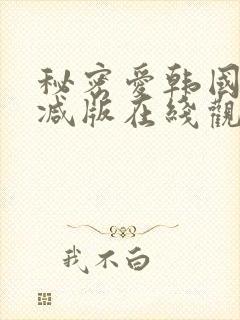 秘密爱韩国
减版在线观
我不白